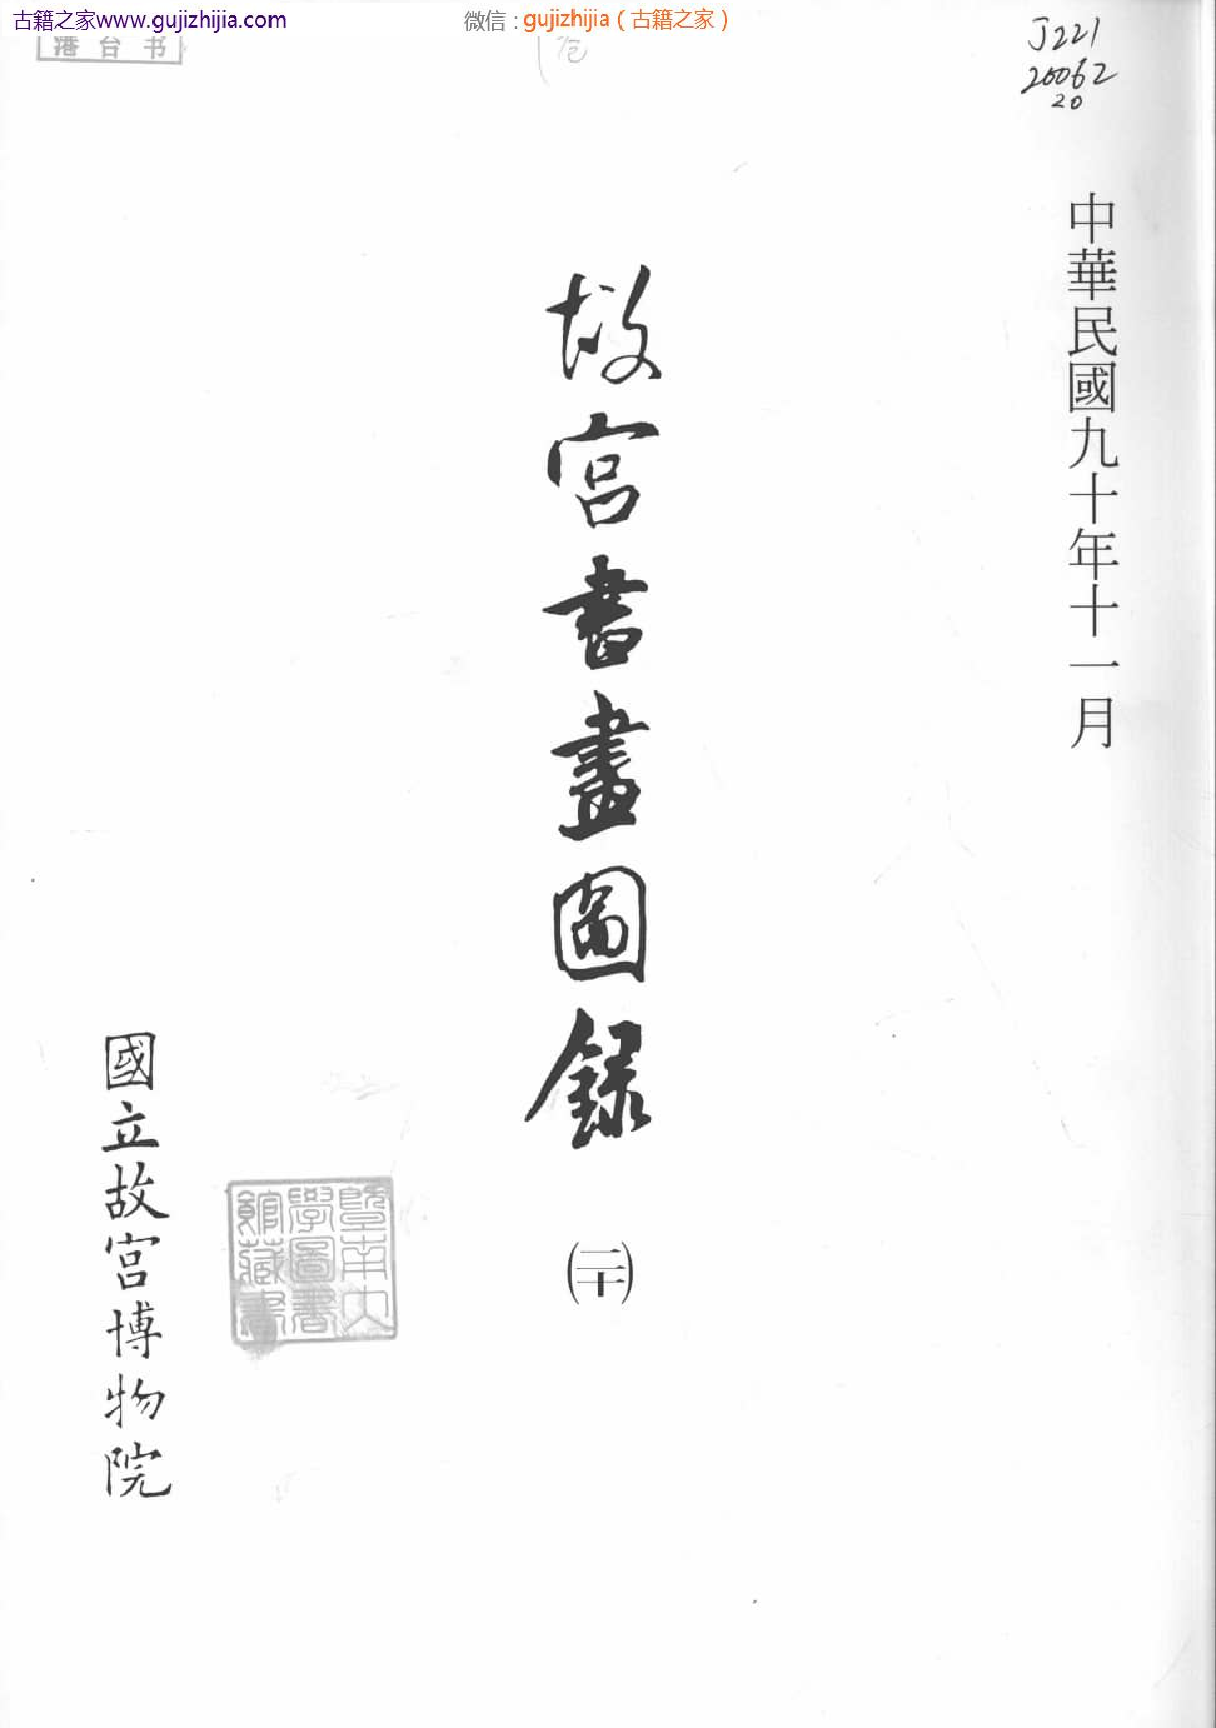 古籍之家www.gujizhijia.com
微信：gujizhijia（古籍之家）
港台书
J221
20062
20
中華民國九十年十一月
故宮書畫圖錄
(二十)
國立故宮博物院
暨南大
學圖書
館藏書